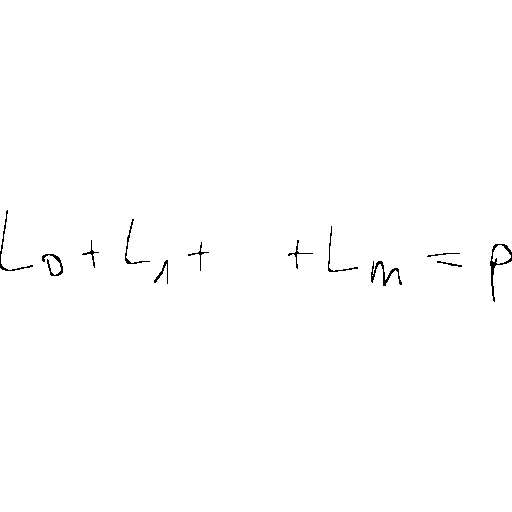 L_0 + L_1 + + L_m = p